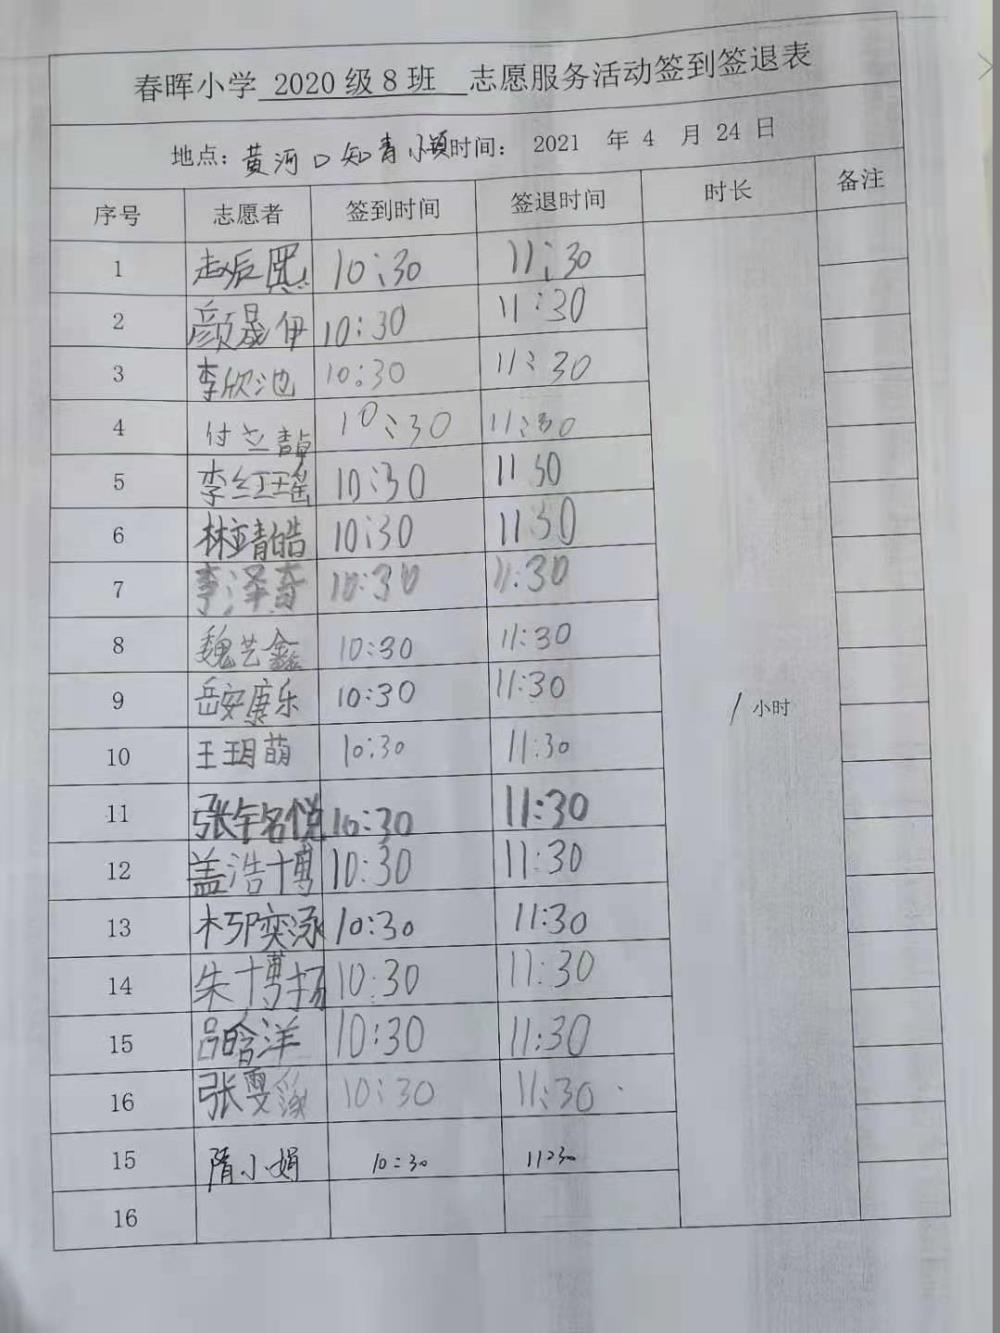 春晖小学 2020级8班 志愿服务活动签到签退表
地点：黄河口知青小镇 时间： 2021 年 4 月 24 日
序号 志愿者 签到时间 签退时间 时长 备注
1 赵辰 10:30 11:30
2 颜晟伊 10:30 11:30
3 李欣池 10:30 11:30
4 付立 10:30 11:30
5 李红瑶 10:30 11 30
6 林靖皓 10:30 11 30
7 李泽奇 10:30 11:30
8 魏艺鑫 10:30 11:30
9 岳安康乐 10:30 11:30
1小时
10 王玥萌 10:30 11:30
11 张名悦 10:30 11:30
12 盖浩博 10:30 11:30
13 奕泳 10:30 11:30
14 朱博扬 10:30 11:30
15 吕晗洋 10:30 11:30
16 张雯 10:30 11:30
15 隋小娟 10:30 11:30
16